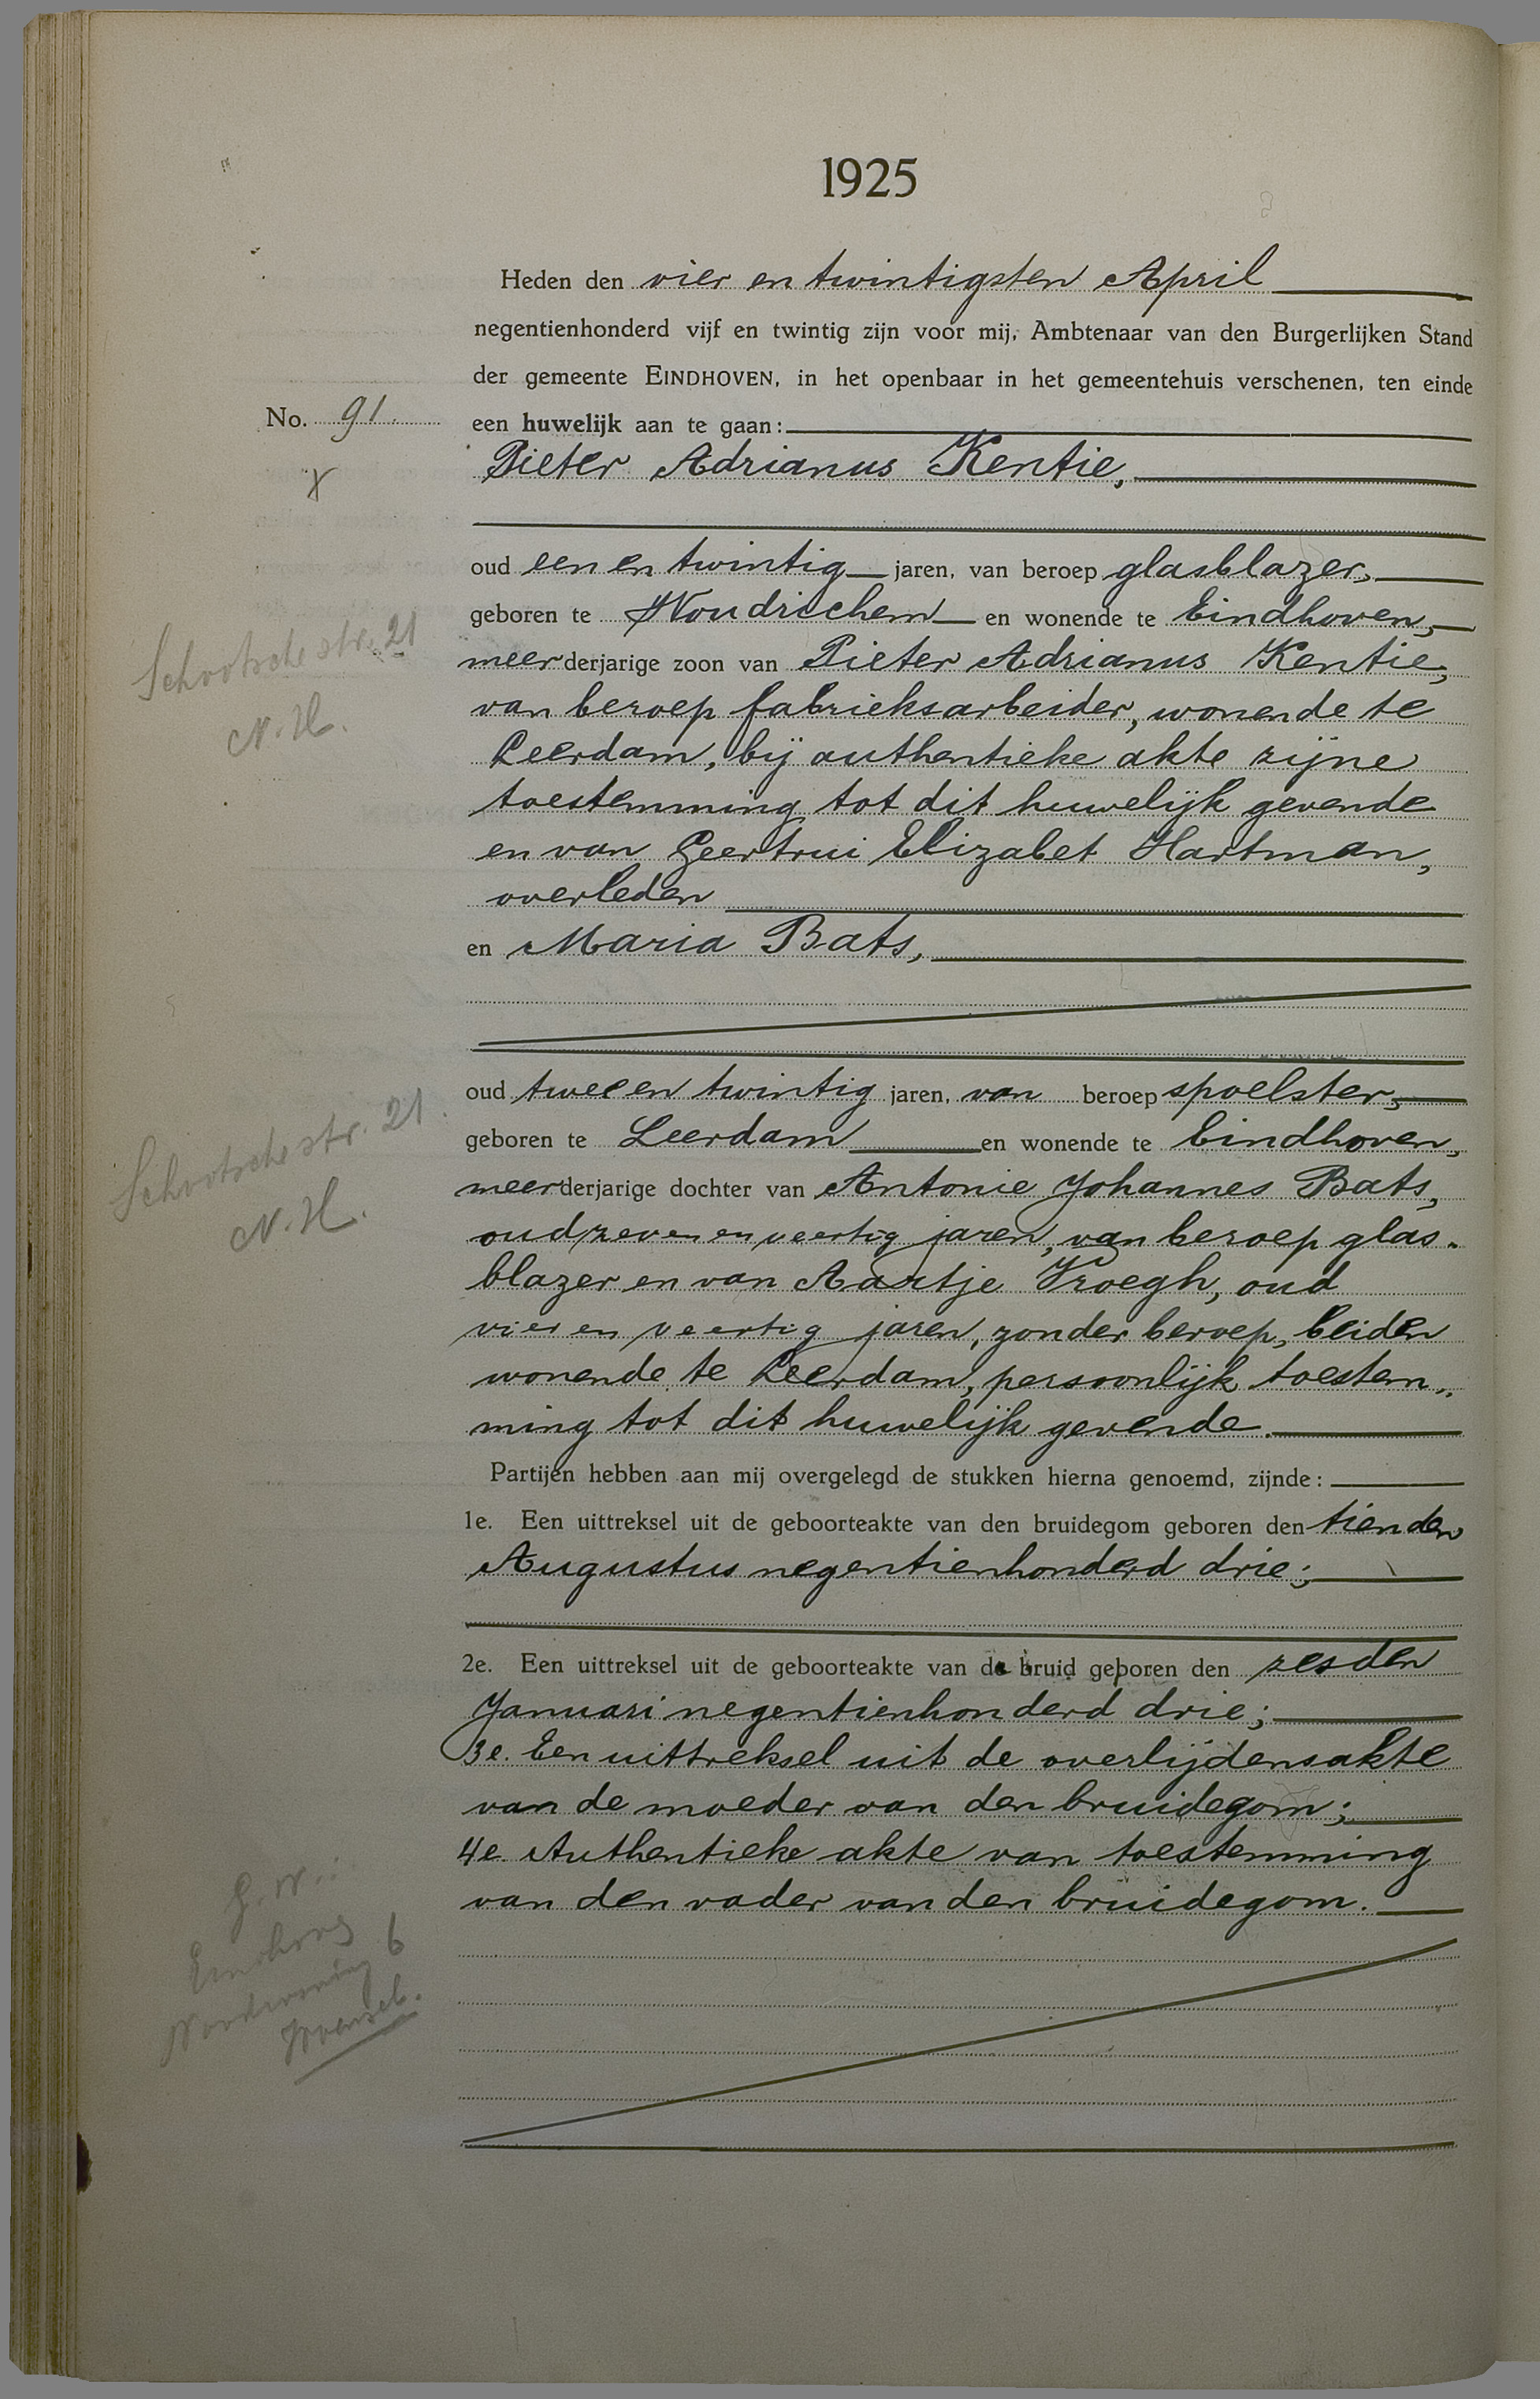 1925
Heden den vier en twintigsten April
negentienhonderd vijf en twintig zijn voor mij, Ambtenaar van den Burgerlijken Stand
der gemeente EINDHOVEN, in het openbaar in het gemeentehuis verschenen, ten einde
No. 91. een huwelijk aan te gaan:
Pieter Adrianus Kentie,
oud een en twintig jaren, van beroep glasblazer,
geboren te Woudrichem en wonende te Eindhoven,
Schootsche str. 21
N.H.
meerderjarige zoon van Pieter Adrianus Kentie,
van beroep fabrieksarbeider, wonende te
Leerdam, bij authentieke akte zijne
toestemming tot dit huwelijk gevende
en van Geertrui Elizabet Hartman,
overleden
en Maria Bats,
oud twee en twintig jaren, van beroep spoelster,
geboren te Leerdam en wonende te Eindhoven,
Schootsche str. 21.
N.H.
meerderjarige dochter van Antonie Johannes Bats,
oud zeven en veertig jaren, van beroep glas-
blazer en van Aartje Vroegh, oud
vier en veertig jaren, zonder beroep, beiden
wonende te Leerdam, persoonlijk toestem-
ming tot dit huwelijk gevende.
Partijen hebben aan mij overgelegd de stukken hierna genoemd, zijnde:
1e. Een uittreksel uit de geboorteakte van den bruidegom geboren den tienden
Augustus negentienhonderd drie;
2e. Een uittreksel uit de geboorteakte van de bruid geboren den zesden
Januari negentienhonderd drie;
3e. Een uittreksel uit de overlijdensakte
van de moeder van den bruidegom;
4e Authentieke akte van toestemming
van den vader van den bruidegom.
6
Woensel.